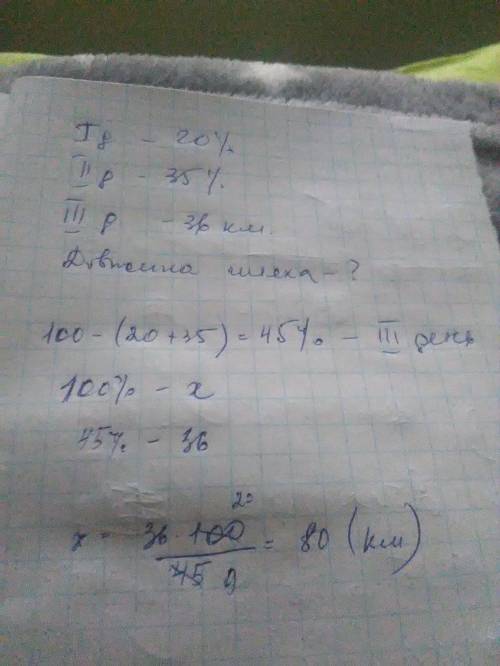 I д - 20%.
II д - 35%.
III д - 36 км.
Довжина шляха - ?
100 - (20 + 35) = 45% - III день
100% - x
45% - 36
20
x = 36 · 100 / 45 9 = 80 (км)